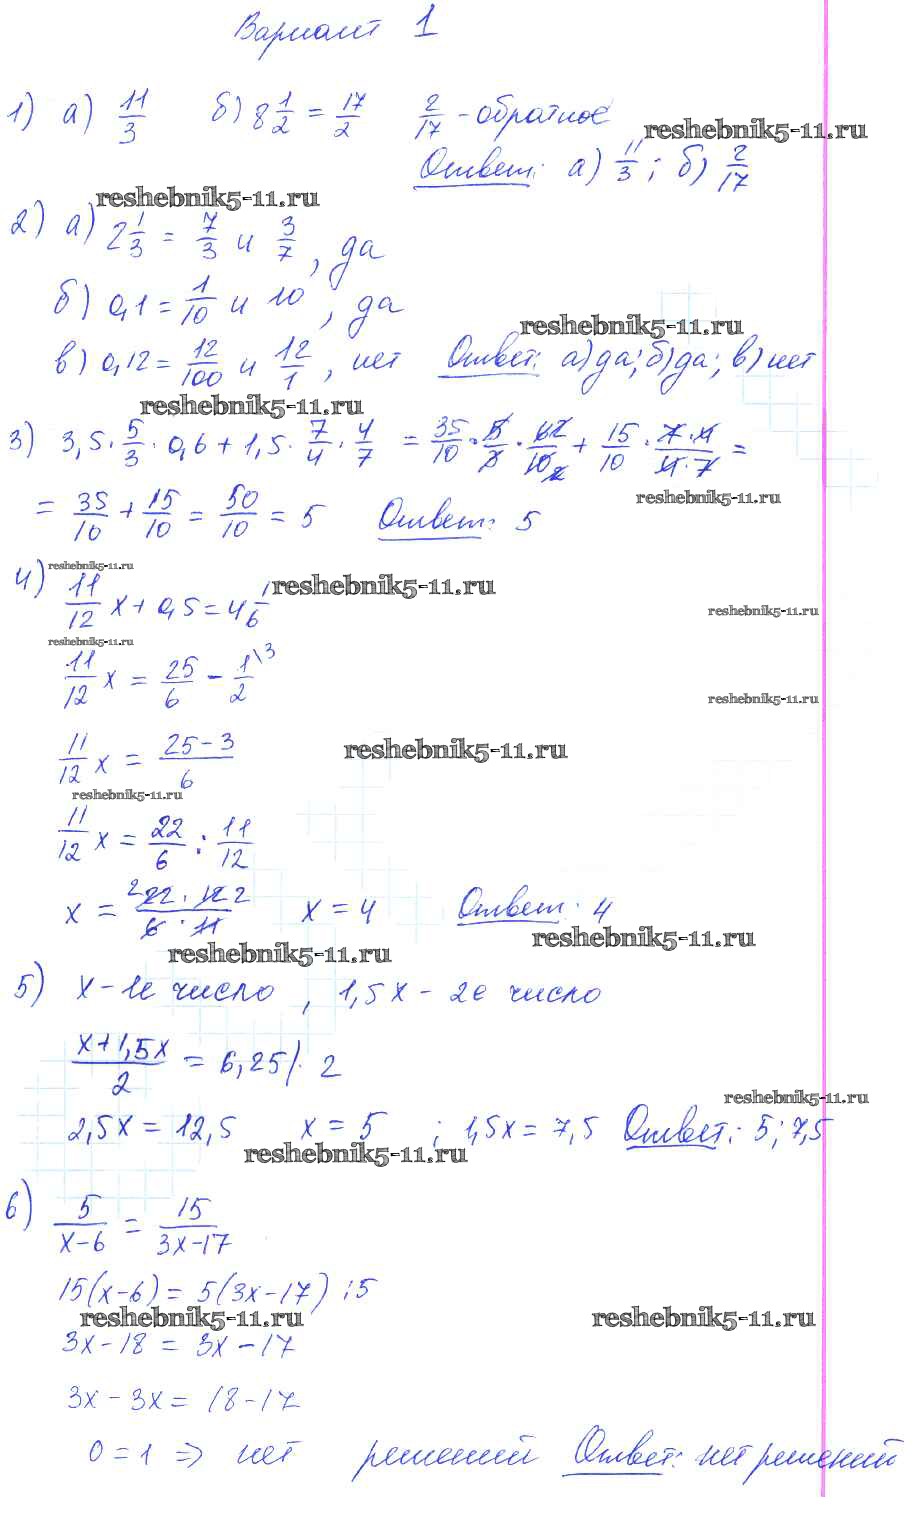 Вариант 1
1) а) 11/3 б) 8 1/2 = 17/2 2/17 - обратное
reshebnik5-11.ru
Ответ: а) 11/3; б) 2/17
reshebnik5-11.ru
2) а) 2 1/3 = 7/3 и 3/7, да
б) 0,1 = 1/10 и 10, да
reshebnik5-11.ru
в) 0,12 = 12/100 и 12/1, нет Ответ: а) да; б) да; в) нет
reshebnik5-11.ru
3) 3,5 · 5/3 · 0,6 + 1,5 · 7/4 · 4/7 = 35/10 · 5/3 · 6/10 + 15/10 · 7·4/4·7 =
reshebnik5-11.ru
= 35/10 + 15/10 = 50/10 = 5 Ответ: 5
reshebnik5-11.ru
reshebnik5-11.ru
4) 11/12 x + 0,5 = 4 1/6
reshebnik5-11.ru
reshebnik5-11.ru
11/12 x = 25/6 - 1\3/2
reshebnik5-11.ru
11/12 x = 25-3/6
reshebnik5-11.ru
reshebnik5-11.ru
11/12 x = 22/6 : 11/12
x = 2 22 · 12 2/6 · 11 x = 4 Ответ: 4
reshebnik5-11.ru
reshebnik5-11.ru
5) x - 1е число, 1,5x - 2е число
x+1,5x/2 = 6,25 |· 2
reshebnik5-11.ru
2,5x = 12,5 x = 5 ; 1,5x = 7,5 Ответ: 5; 7,5
reshebnik5-11.ru
6) 5/x-6 = 15/3x-17
15(x-6) = 5(3x-17) :5
reshebnik5-11.ru reshebnik5-11.ru
3x-18 = 3x-17
3x-3x = 18-17
0=1 => нет решений Ответ: нет решений